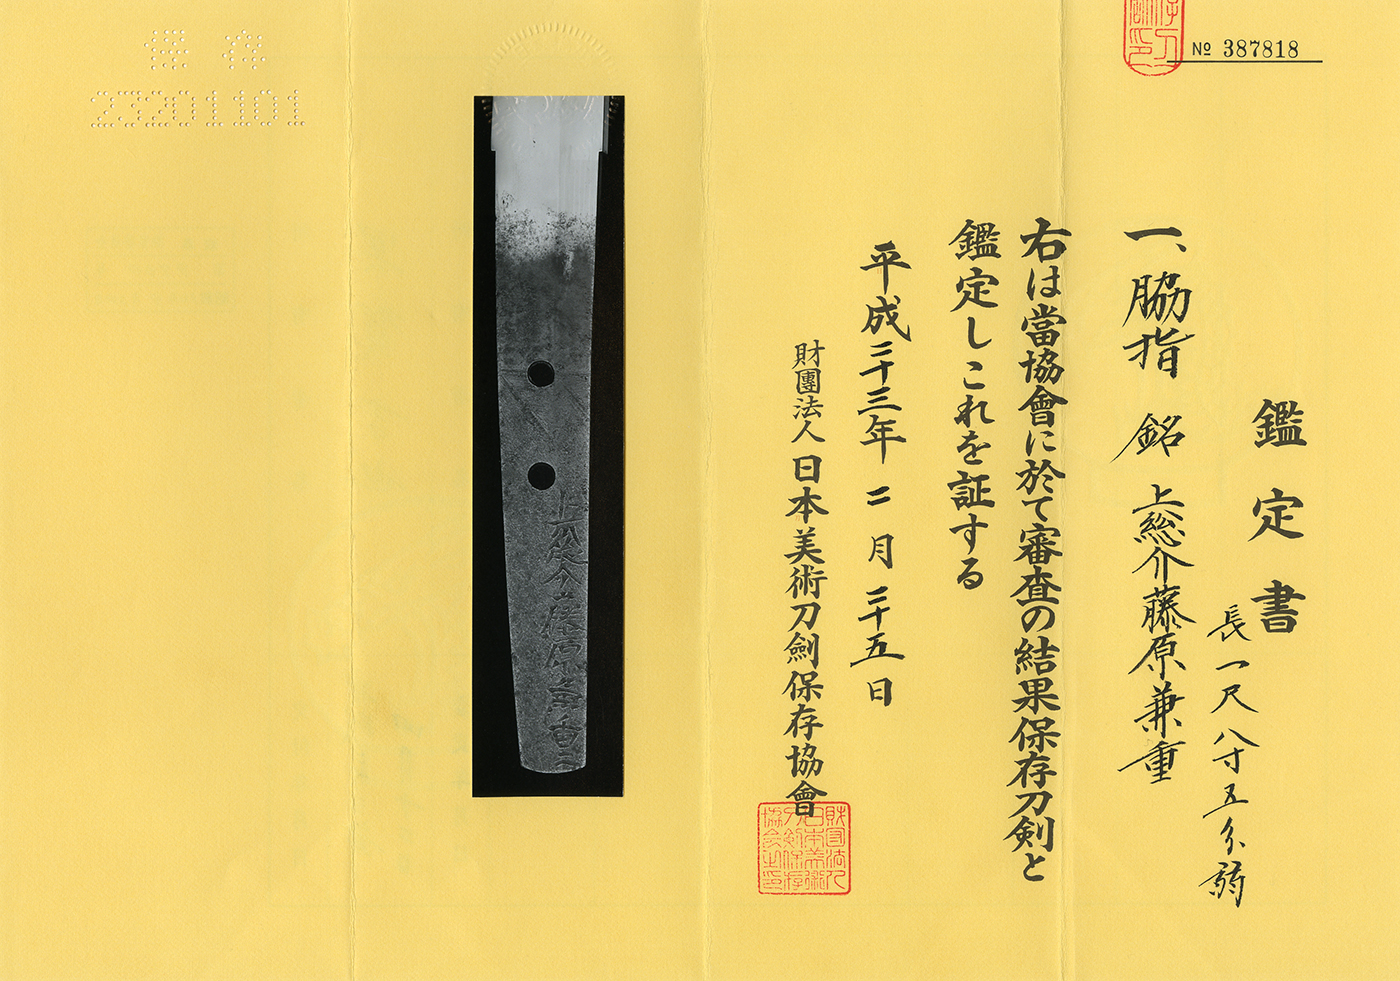 № 387818
鑑定書
一、脇指 銘 上総介藤原兼重
長一尺八寸五分弱
右は當協會に於て審査の結果保存刀劍と
鑑定しこれを証する
平成二十三年二月二十五日
財團法人日本美術刀劍保存協會
保存
23201101
上総介藤原兼重